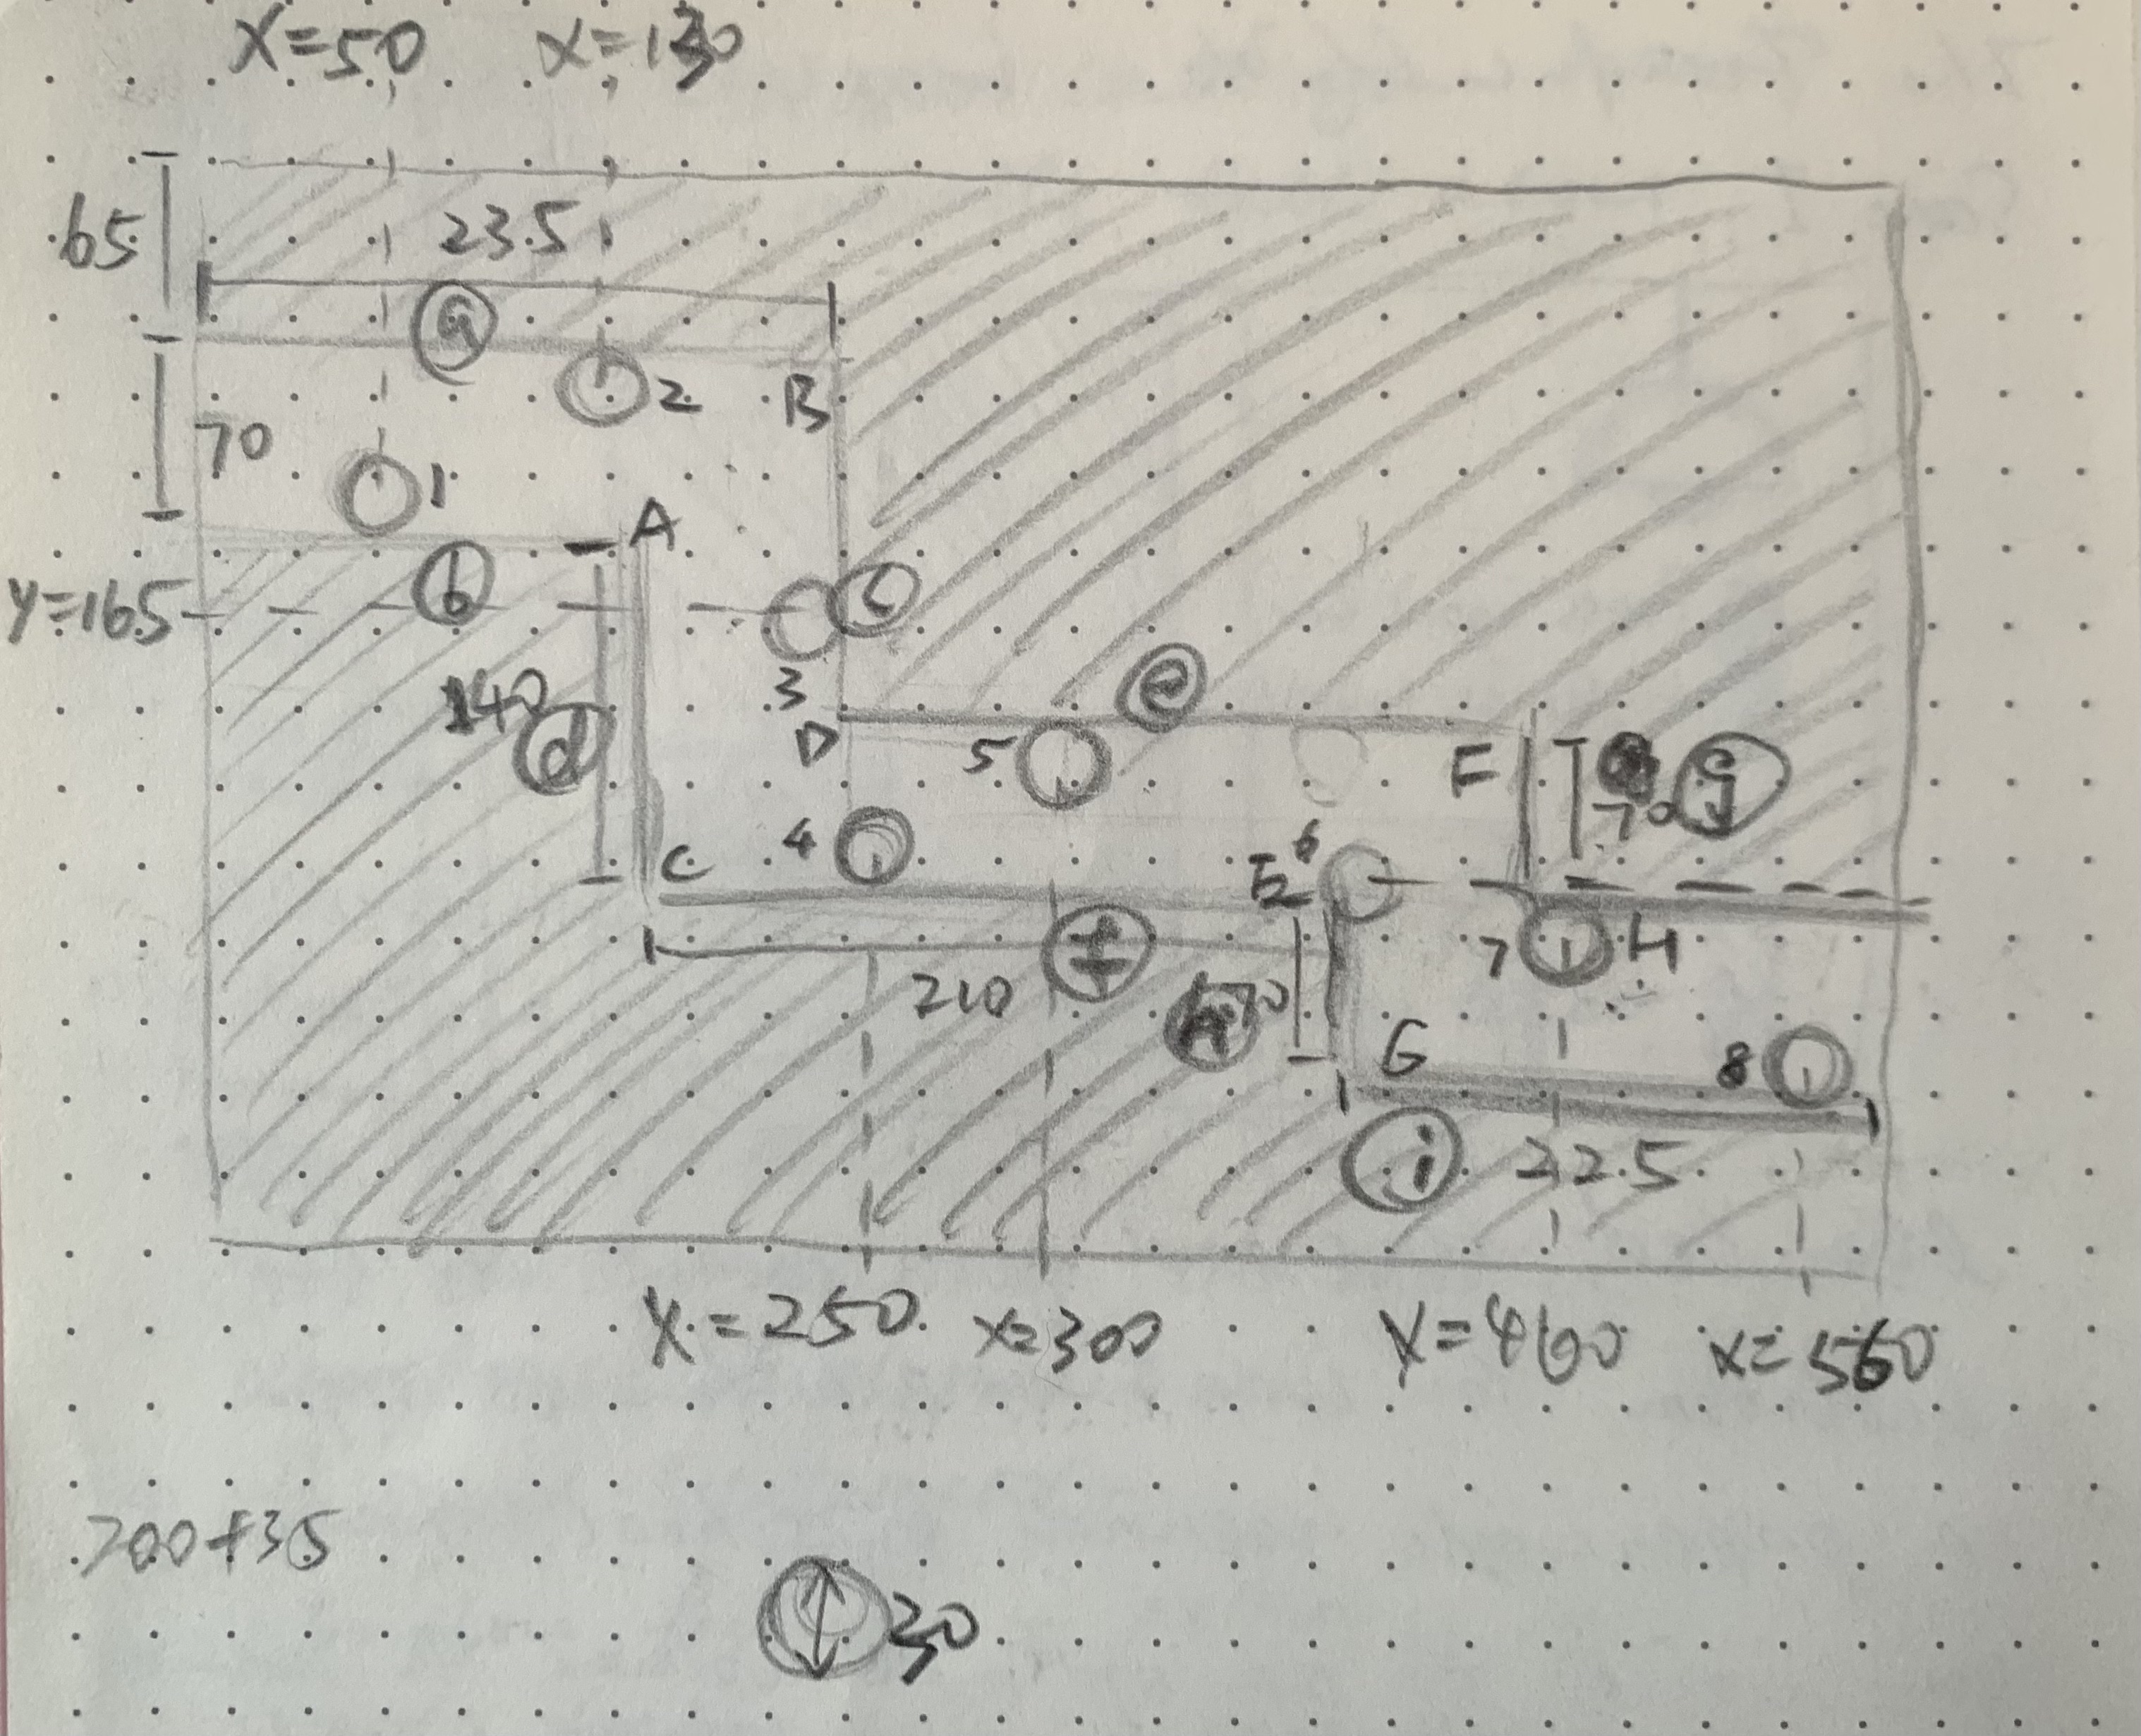 X=50 X=130
65
235
a
2
B
70
1
A
b
Y=165
c
3
140
d
e
D
5
F
70
g
4
C
6
E
f
7
H
210
70
G
8
i
225
X=250 X=300 X=460 X=560
200+35
30